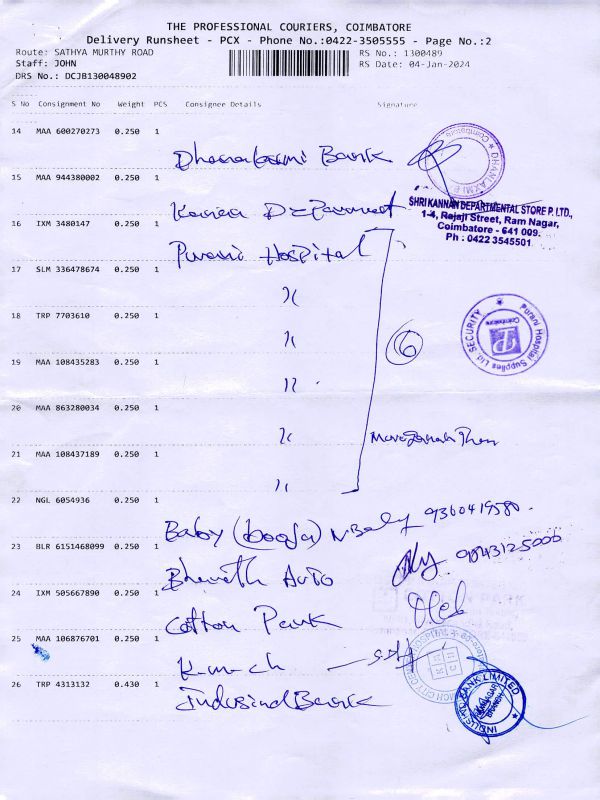 THE PROFESSIONAL COURIERS, COIMBATORE
Delivery Runsheet - PCX - Phone No.:0422-3505555 - Page No.:2
Route: SATHYA MURTHY ROAD RS No.: 1300489
Staff: JOHN RS Date: 04-Jan-2024
DRS No.: DCJB130048902
S No Consignment No Weight PCS Consignee Details Signature
14 MAA 600270273 0.250 1
Dhanalaxmi Bank
15 MAA 944380002 0.250 1
SHRI KANNAN DEPARTMENTAL STORE P. LTD.,
1-4, Rajaji Street, Ram Nagar,
Coimbatore - 641 009.
Ph : 0422 3545501
16 IXM 3480147 0.250 1
Purani Hospital
17 SLM 336478674 0.250 1
"
18 TRP 7703610 0.250 1
" 6
Purani Hospital Supplies Ltd. SECURITY
Coimbatore
19 MAA 108435283 0.250 1
"
20 MAA 863280034 0.250 1
"
21 MAA 108437189 0.250 1
"
22 NGL 6054936 0.250 1
Baby (Pooja) N. Baby 9360419580
23 BLR 6151468099 0.250 1
Bharath Auto 9843125000
24 IXM 505667890 0.250 1
Cotton Park
25 MAA 106876701 0.250 1
K.m.c.h
26 TRP 4313132 0.430 1
Indusind Bank
INDUSIND BANK LIMITED